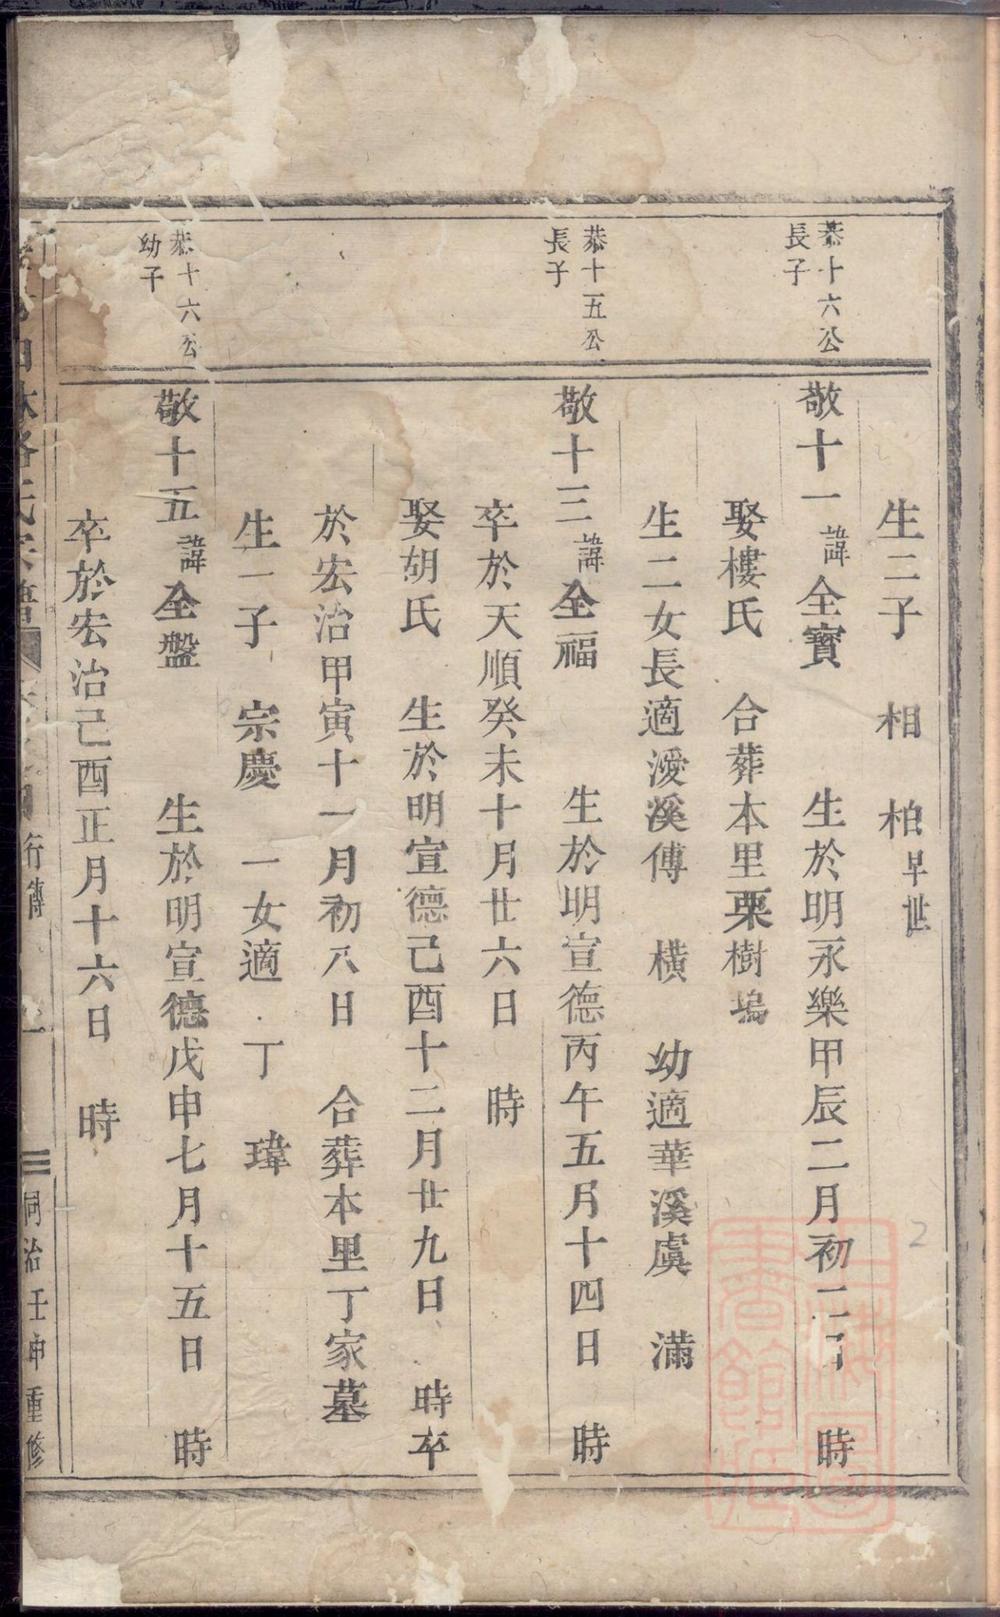 生二子　相　柏早世
恭十六公
長子
敬十一諱全寶　生於明永樂甲辰二月初二日　時
娶樓氏　合葬本里栗樹塢
生二女長適澐溪傅　橫　幼適華溪虞　滿
恭十五公
長子
敬十三諱全福　生於明宣德丙午五月十四日　時
卒於天順癸未十月廿六日　時
娶胡氏　生於明宣德己酉十二月廿九日　時卒
於宏治甲寅十一月初八日　合葬本里丁家墓
生一子　宗慶　一女適　丁　瑋
恭十六公
幼子
敬十五諱全盤　生於明宣德戊申七月十五日　時
卒於宏治己酉正月十六日　時
氏宗譜
行傳
同治壬申重修
上海圖書館藏
2